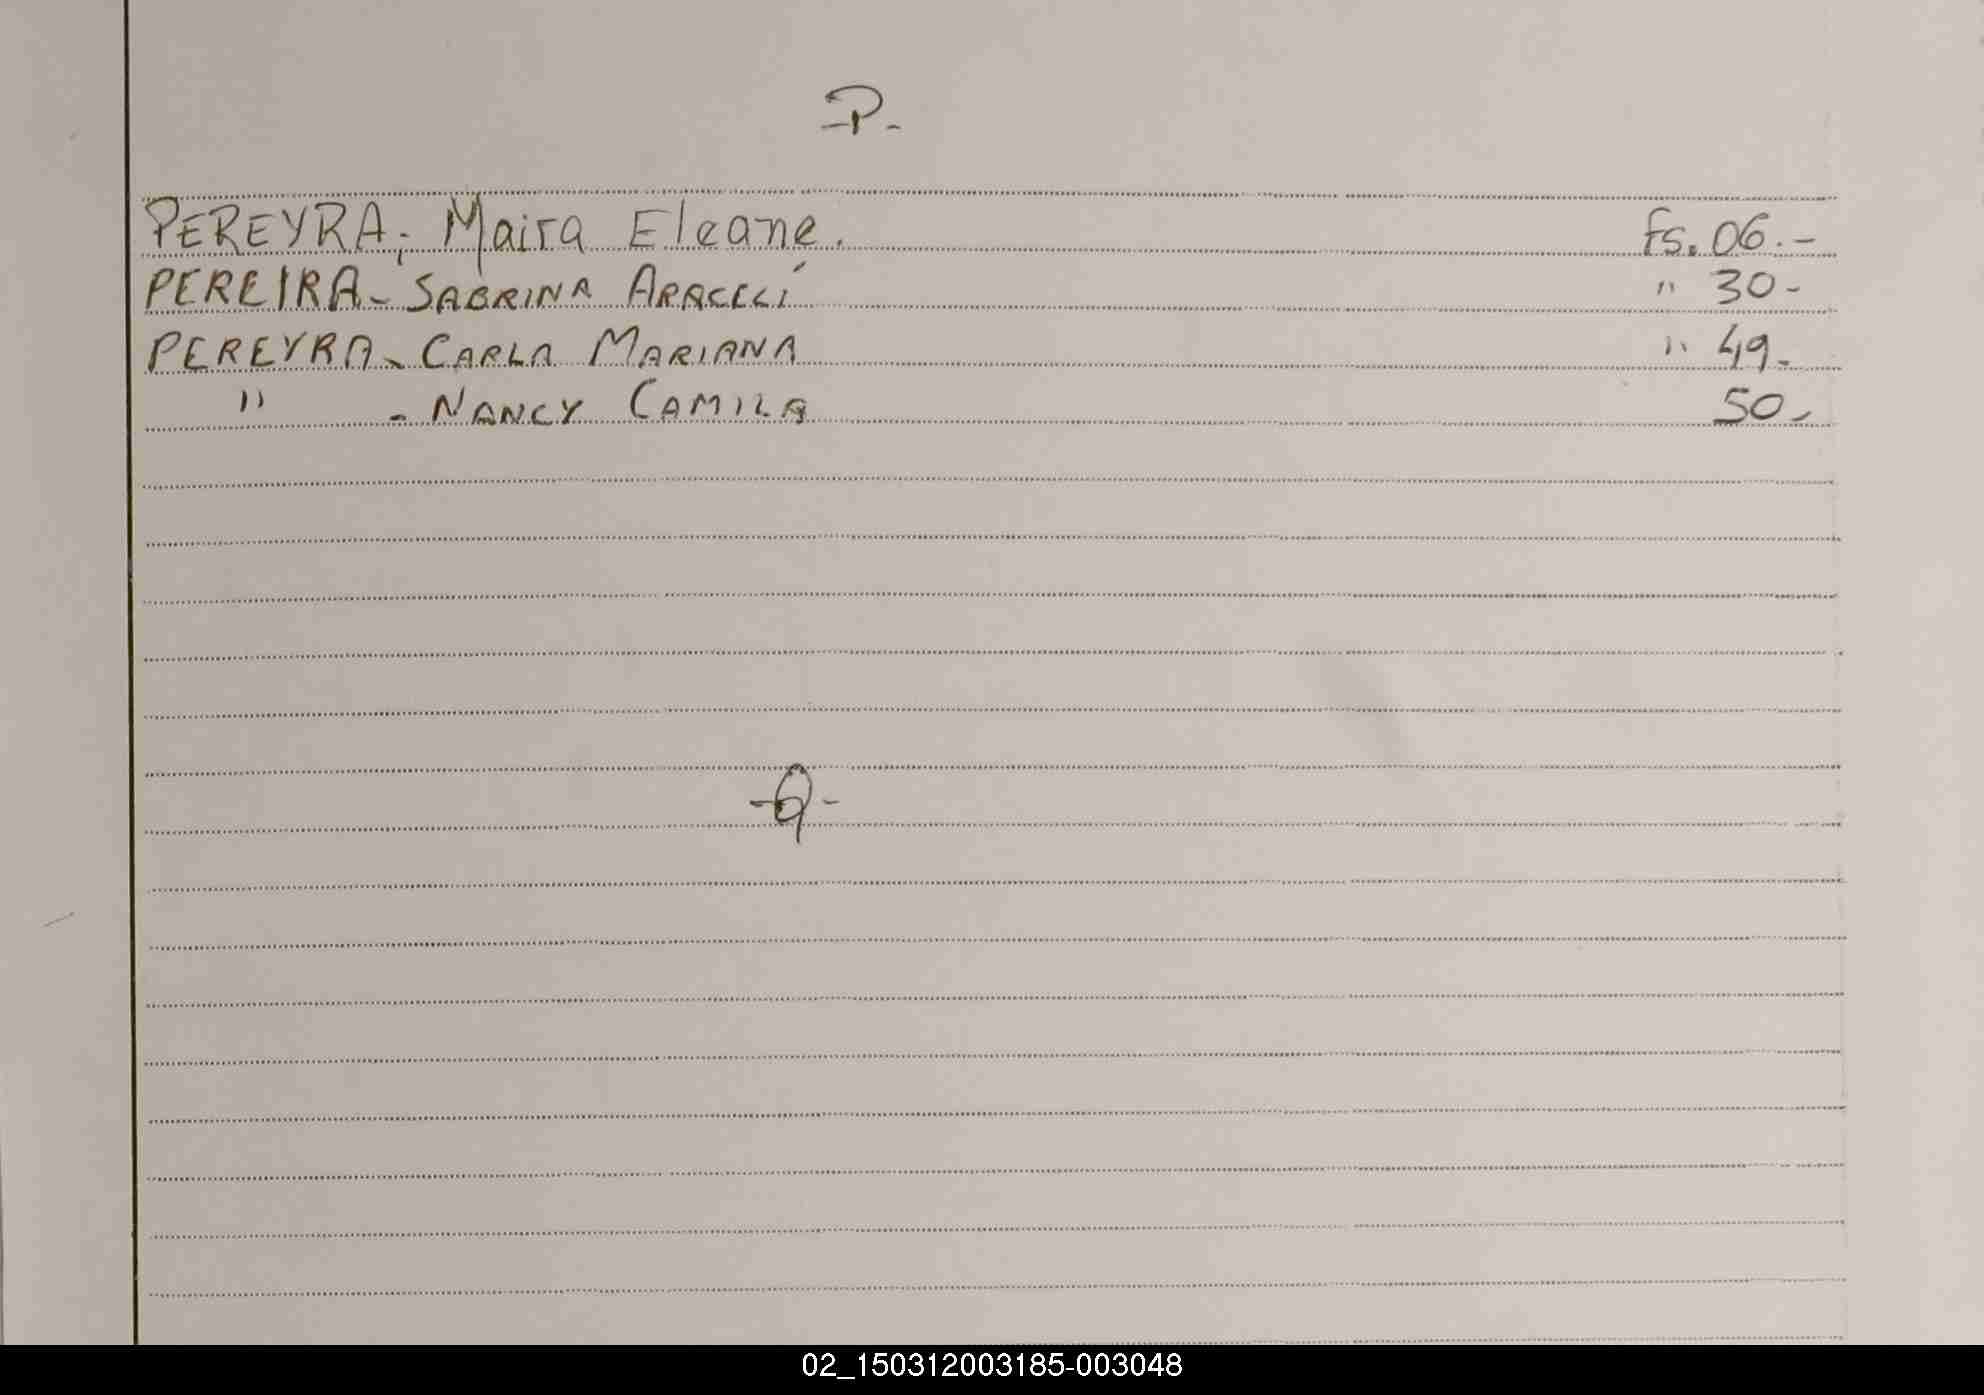 -P-
PEREYRA, Maira Eleane. Fs. 06.-
PEREIRA - SABRINA ARACELÍ " 30-
PEREYRA - CARLA MARIANA " 49-
" - NANCY CAMILA 50-
-Q-
02_150312003185-003048